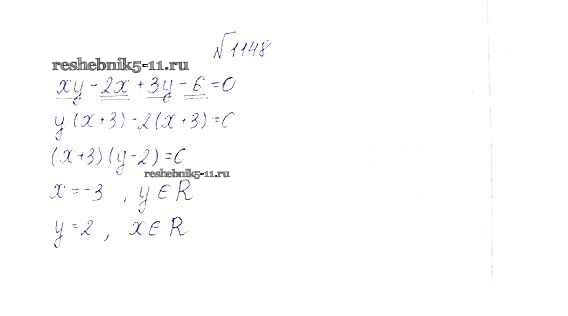 №1148
reshebnik5-11.ru
xy - 2x + 3y - 6 = 0
y(x+3) - 2(x+3) = 0
(x+3)(y-2) = 0
reshebnik5-11.ru
x = -3 , y ∈ R
y = 2 , x ∈ R